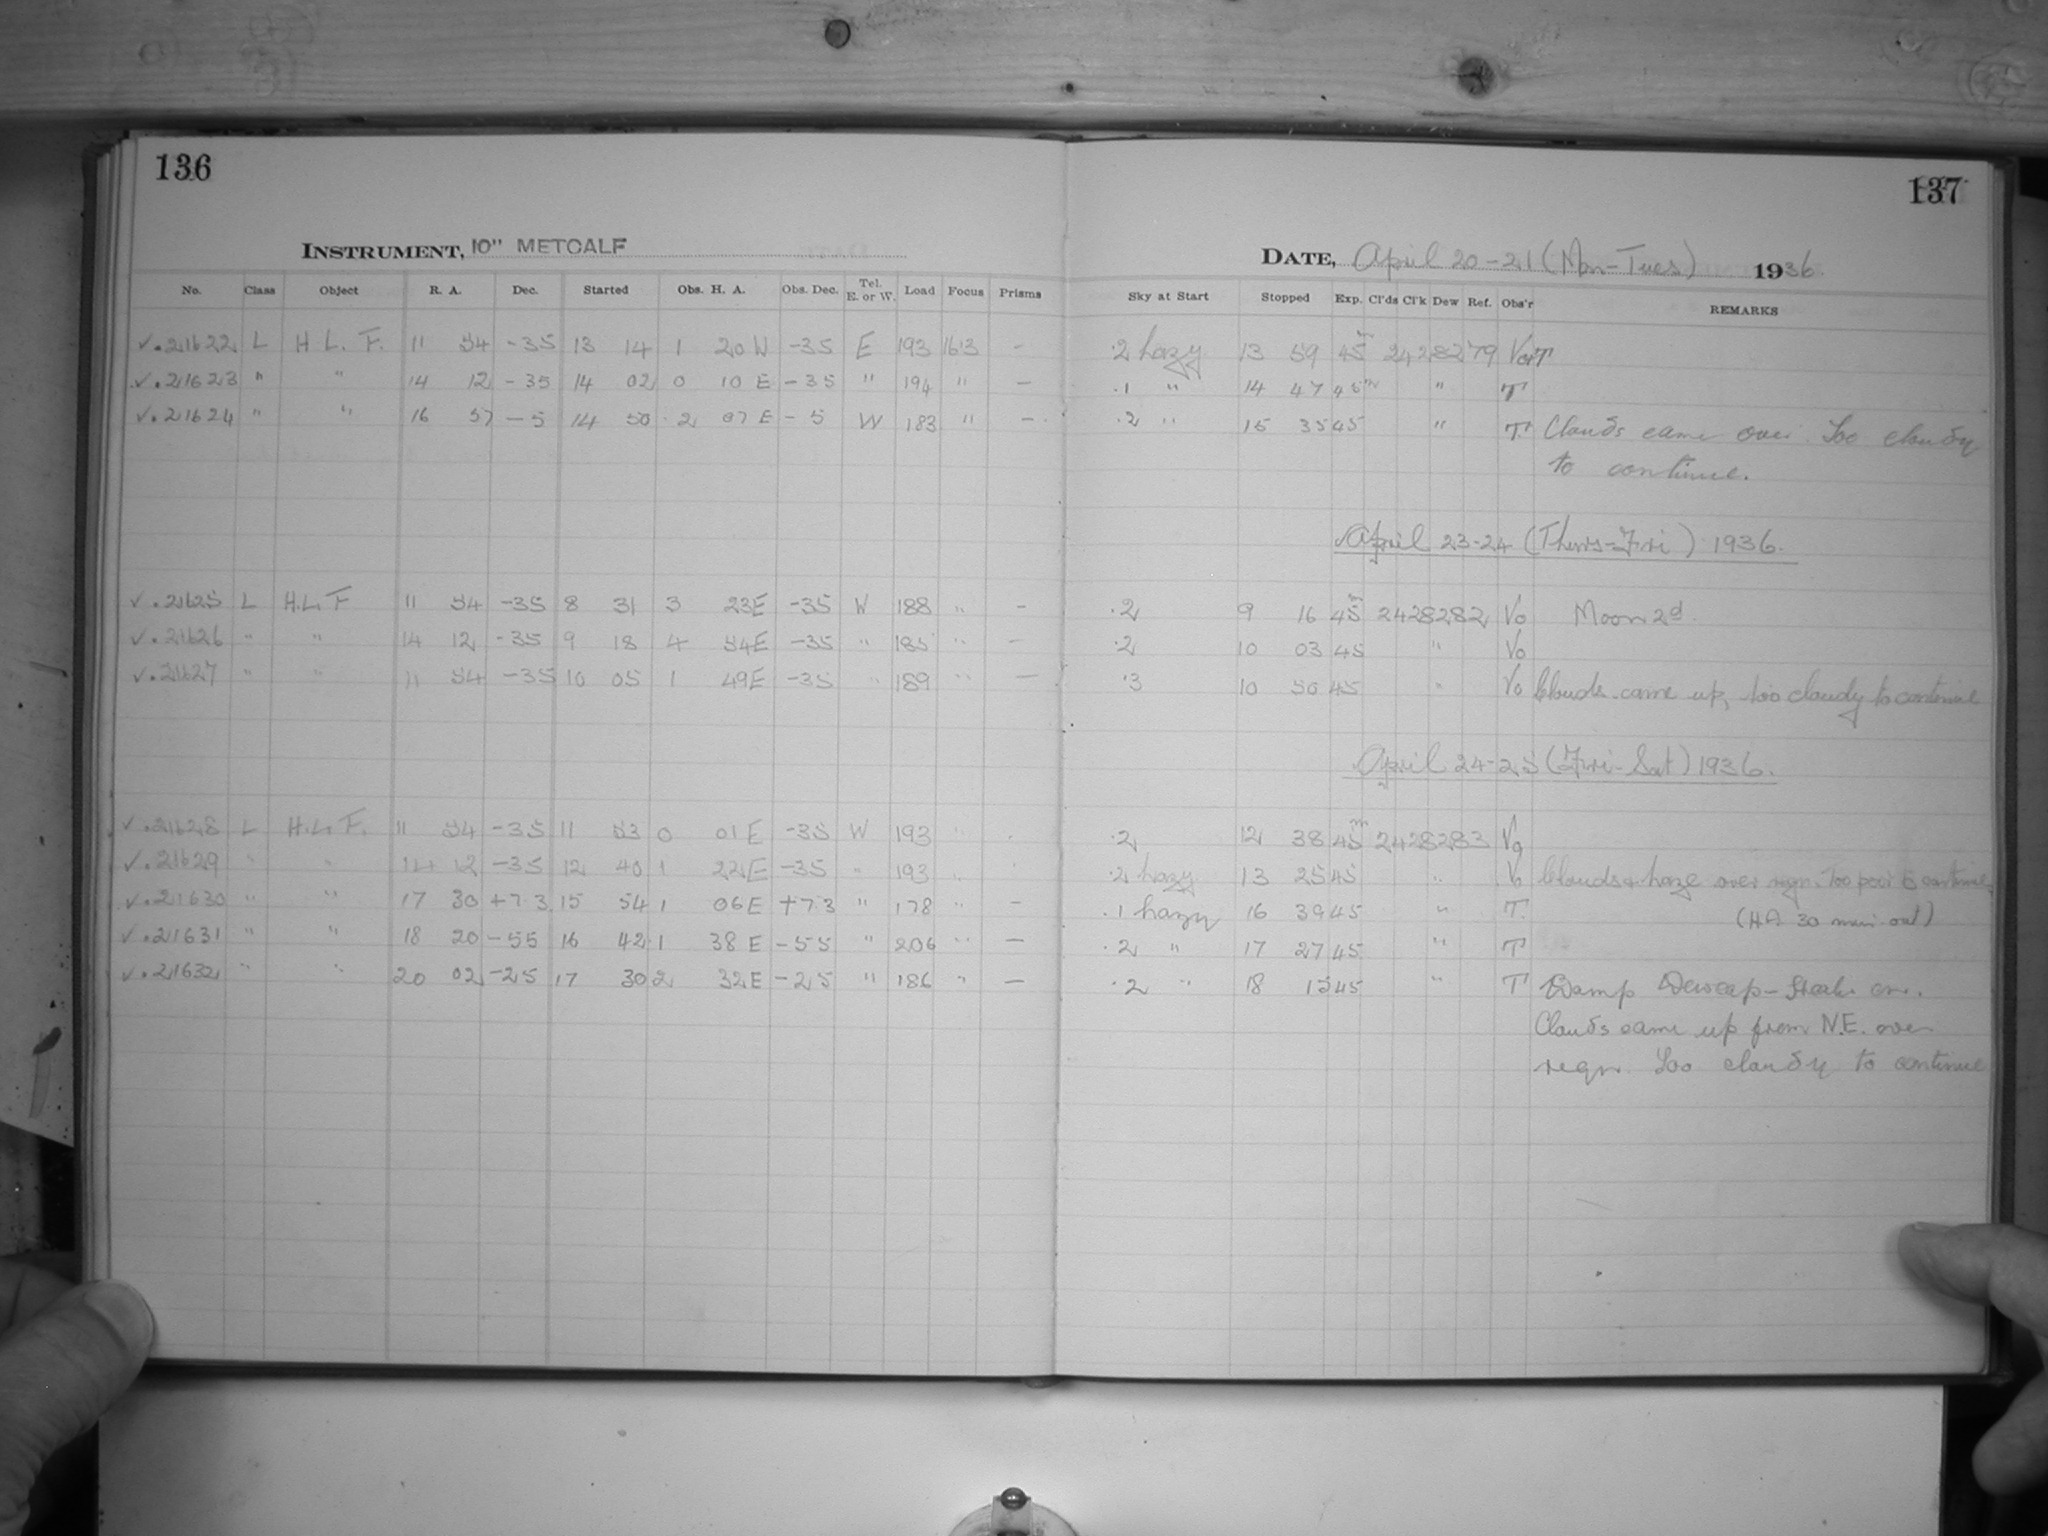 136
137
INSTRUMENT, 10" METCALF
DATE, April 20-21 (Mon-Tues) 1936
No. Class Object R. A. Dec. Started Obs. H. A. Obs. Dec. Tel. E. or W. Load Focus Prisms Sky at Start Stopped Exp. Cl'ds Cl'k Dew Ref. Obs'r REMARKS
✓.21622 L H. L. F. 11 54 -35 13 14 1 20 W -35 E 193 163 - .2 hazy 13 59 45m 2428279
✓.21623 " " 14 12 -35 14 02 0 10 E -35 " 194 " - .1 " 14 47 45m " T
✓.21624 " " 16 57 -5 14 50 2 07 E -5 W 183 " - .2 " 15 35 45 " T Clouds came over. Too cloudy
to continue.
April 23-24 (Thurs-Fri) 1936.
✓.21625 L H.L.F 11 54 -35 8 31 3 23E -35 W 188 " - .2 9 16 45m 2428282 Vo Moon 2d.
✓.21626 " " 14 12 -35 9 18 4 54E -35 " 185 " - .2 10 03 45 " Vo
✓.21627 " " 11 54 -35 10 05 1 49E -35 " 189 " - .3 10 50 45 " Vo Clouds came up, too cloudy to continue
April 24-25 (Fri-Sat) 1936.
✓.21628 L H.L.F. 11 54 -35 11 53 0 01 E -35 W 193 " .2 12 38 45m 2428283 Vo
✓.21629 " " 14 12 -35 12 40 1 22E -35 " 193 " .2 hazy 13 25 45 " Vo Clouds & haze over regn. Too poor to continue.
✓.21630 " " 17 30 +7.3 15 54 1 06E +7.3 " 178 " - .1 hazy 16 39 45 " T. (HA 30 min out)
✓.21631 " " 18 20 -55 16 42 1 38 E -55 " 206 " - .2 " 17 27 45 " T
✓.21632 " " 20 02 -25 17 30 2 32E -25 " 186 " - .2 " 18 15 45 " T Damp Dewcap-
Clouds came up from N.E. over
regn. Too cloudy to continue